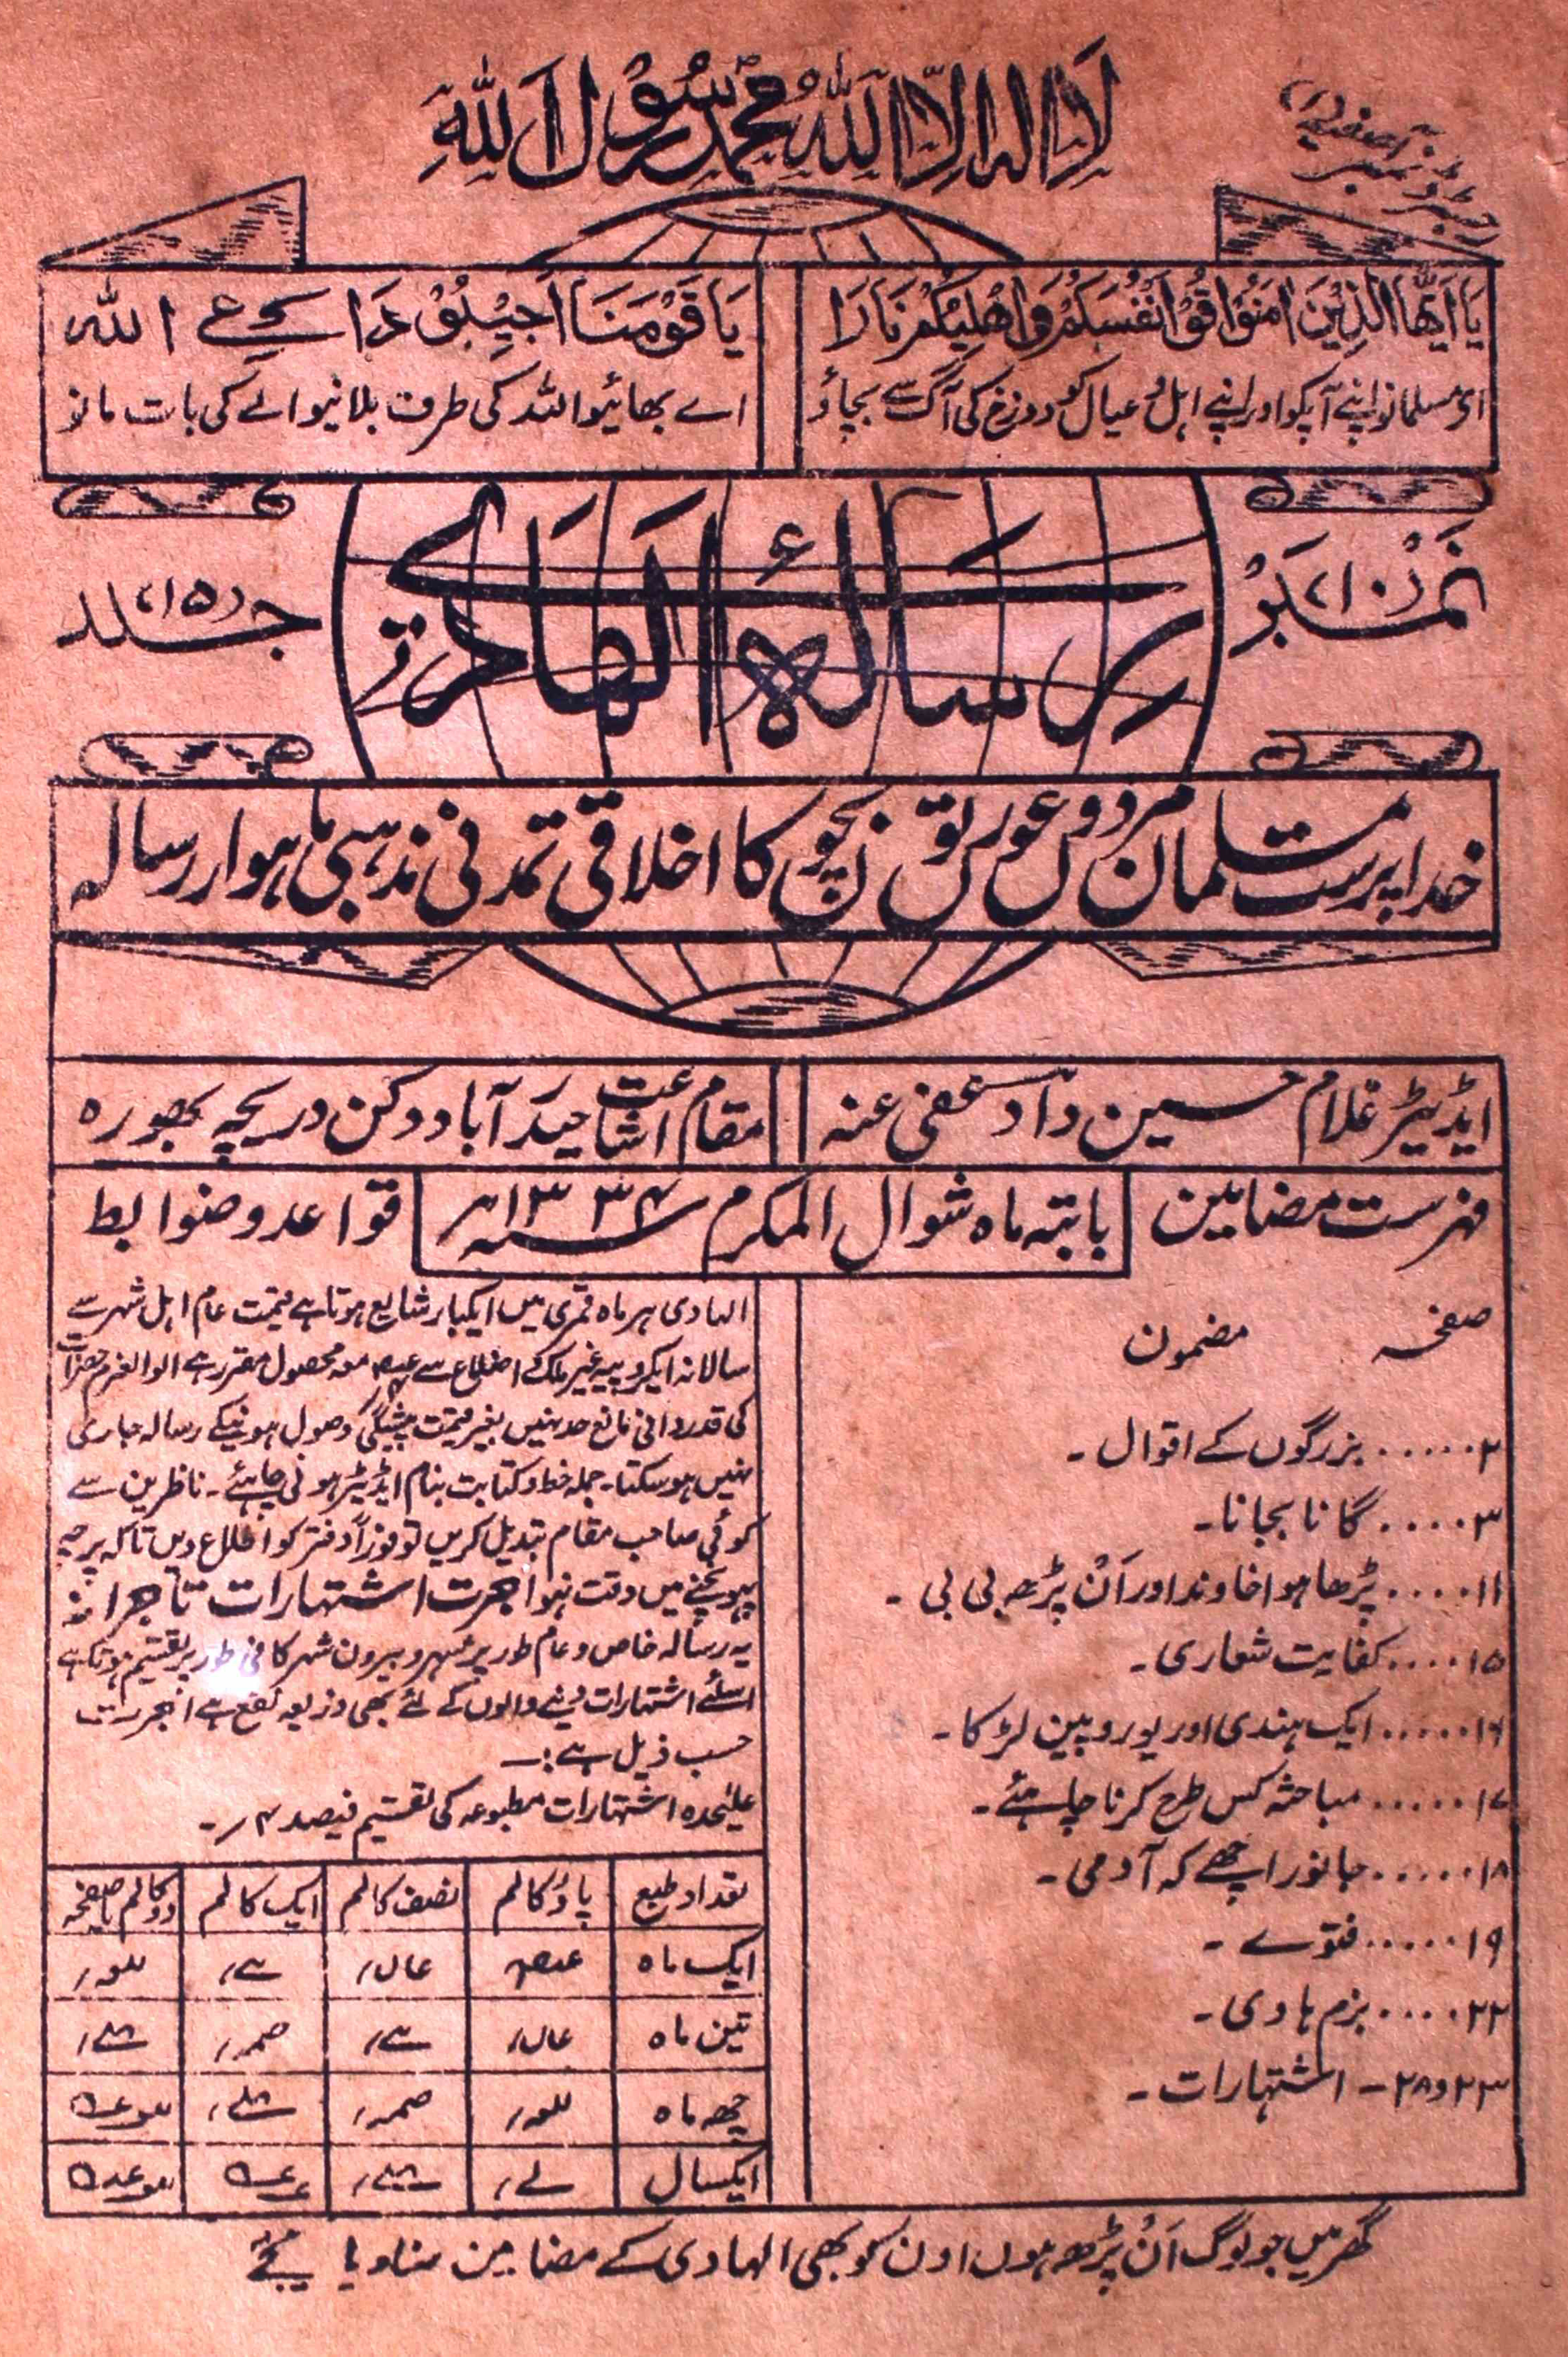 لَا اِلٰهَ اِلَّا اللّٰهُ مُحَمَّدٌ رَّسُوْلُ اللّٰهِ
رجسٹرڈ نمبر آصفیہ
يَا اَيُّهَا الَّذِيْنَ اٰمَنُوْا قُوْا اَنْفُسَكُمْ وَاَهْلِيْكُمْ نَارًا
ای مسلمانو اپنے آپکو اور اپنے اہل و عیال کو دوزخ کی آگ سے بچاؤ
يَا قَوْمَنَا اَجِيْبُوْا دَاعِيَ اللّٰه
اے بھائیو اللہ کی طرف بلانیوالے کی بات مانو
نمبر (۱۰)
رسالۂ الہادی
جلد (۵)
خدا پرست مسلمان مردوں عورتوں بچوں کا اخلاقی تمدنی مذہبی ماہوار رسالہ
ایڈیٹر غلام حسین داد عفی عنہ
مقام اشاعت حیدرآباد دکن دریچہ بھورہ
فہرست مضامین
بابتہ ماہ شوال المکرم سنہ ۱۳۳۴ھ
قواعد و ضوابط
صفحہ مضمون
۲ ...... بزرگوں کے اقوال ۔
۳ .... گانا بجانا ۔
۱۱ .... پڑھا ہوا خاوند اور اَن پڑھ بی بی ۔
۱۵ .... کفایت شعاری ۔
۱۶ ..... ایک ہندی اور یوروپین لڑکا ۔
۱۷ ..... مباحثہ کس طرح کرنا چاہئے ۔
۱۸ ..... جانور اچھے کہ آدمی ۔
۱۹ ..... فتوے ۔
۲۲ .... بزم ہادی ۔
۲۳ و ۲۸ ۔ اشتہارات ۔
الہادی ہر ماہ قمری میں ایکبار شایع ہوتا ہے قیمت عام اہل شہر سے
سالانہ ایکروپیہ غیر ملک و اضلاع سے معہ محصول مقرر ہے الوالعزم حضرات
کی قدردانی مانع حد نہیں بغیر قیمت پیشگی وصول ہونیکے رسالہ جاری
نہیں ہوسکتا ۔ جملہ خط و کتابت بنام ایڈیٹر ہونی چاہئے ۔ ناظرین سے
کوئی صاحب مقام تبدیل کریں تو فوراً دفتر کو اطلاع دیں تاکہ پرچہ
پہونچنے میں دقت نہو اجرت اشتہارات تاجرانہ
یہ رسالہ خاص و عام طور پر شہر و بیرون شہر کافی طور پر تقسیم ہوتا ہے
اسلئے اشتہارات دینے والوں کے لئے بھی ذریعہ نفع ہے اجرت
حسب ذیل ہے :۔
علیٰحدہ اشتہارات مطبوعہ کی تقسیم فیصد ۴؍ ۔
تعداد طبع پاؤ کالم نصف کالم ایک کالم دو کالم یا صفحہ
ایک ماہ
تین ماہ
چھ ماہ
ایکسال
گھر میں جو لوگ اَن پڑھ ہوں اون کو بھی الہادی کے مضامین سنا دیا کیجئے